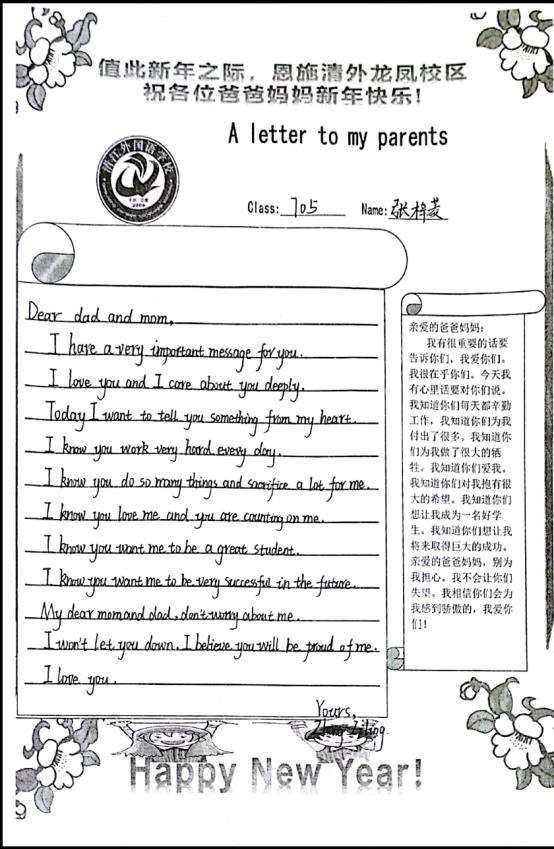 值此新年之际，恩施清外龙凤校区
祝各位爸爸妈妈新年快乐！
A letter to my parents
清江外国语学校
Class: 705 Name: 张梓菱
Dear dad and mom,
I have a very important message for you.
I love you and I care about you deeply.
Today I want to tell you something from my heart.
I know you work very hard every day.
I know you do so many things and sacrifice a lot for me.
I know you love me and you are counting on me.
I know you want me to be a great student.
I know you want me to be very successful in the future.
My dear mom and dad, don't worry about me.
I won't let you down. I believe you will be proud of me.
I love you.
Yours,
Zhang Ziling
亲爱的爸爸妈妈:
我有很重要的话要
告诉你们，我爱你们。
我很在乎你们。今天我
有心里话要对你们说。
我知道你们每天都辛勤
工作，我知道你们为我
付出了很多。我知道你
们为我做了很大的牺
牲。我知道你们爱我。
我知道你们对我抱有很
大的希望。我知道你们
想让我成为一名好学
生。我知道你们想让我
将来取得巨大的成功。
亲爱的爸爸妈妈，别为
我担心。我不会让你们
失望。我相信你们会为
我感到骄傲的，我爱你
们！
Happy New Year!